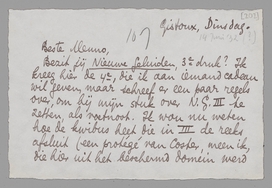 [213]
Gistoux, Dinsdag.
107
Beste Menno,
Bezit jij Nieuwe Geluiden, 3e druk? Ik
kreeg hier de 4e, die ik aan iemand cadeau
wil geven, maar schreef er een paar regels
over, om bij mijn stuk over N.G. III te
zetten, als voetnoot. Ik wou nu weten
hoe de kwibus heet die in III de reeks
afsluit (een protégé van Coster, meen ik,
die hier uit het beschermd domein werd